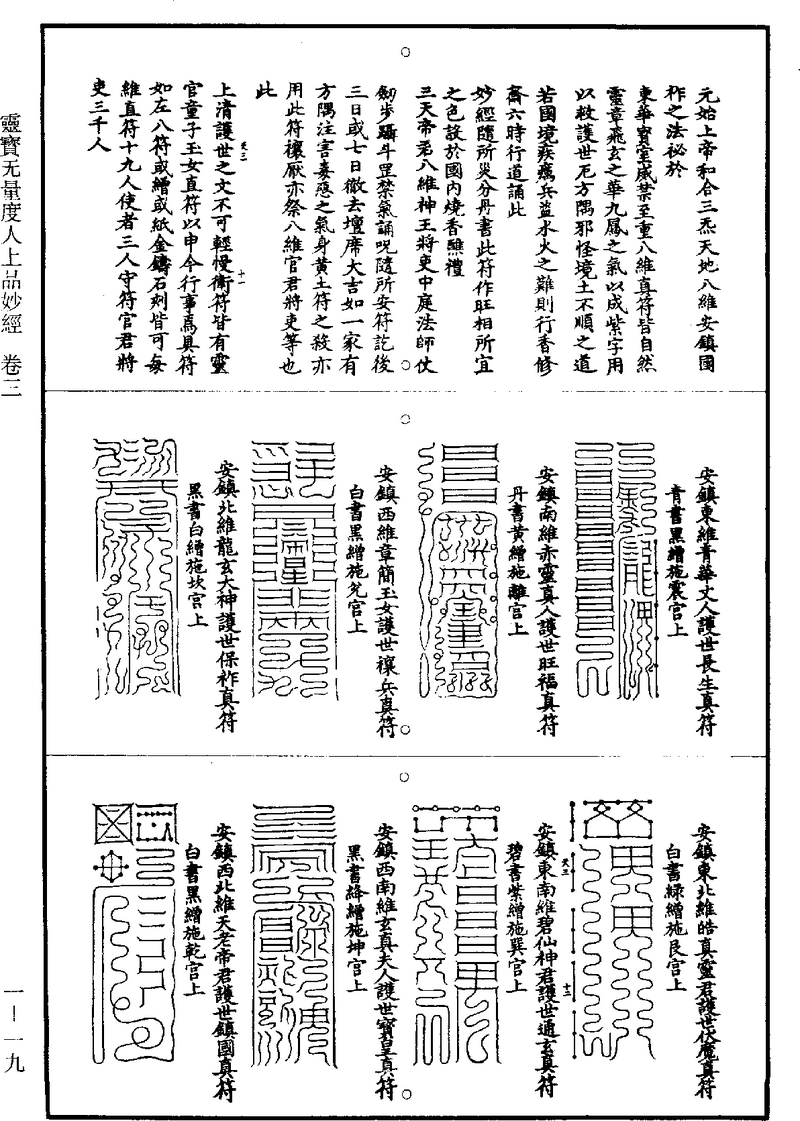 元始上帝和合三炁天地八維安鎮國
祚之法祕於
東華寶室咸禁至重八維真符皆自然
靈章飛玄之華九屬之氣以成紫字用
以救護世厄方隅邪怪境土不順之道
若國境疾癘兵盜水火之難則行香修
齋六時行道誦此
妙經隨所災分丹書此符作旺相所宜
之色設於國內燒香醮禮
三天帝君八維神王將吏中庭法師仗
劒步躡斗罡禁氣誦呪隨所安符訖後
三日或七日徹去壇席大吉如一家有
方隅注害毒惡之氣身黃土符之殺亦
用此符禳厭亦祭八維官君將吏等也
此
上清護世之文不可輕慢衛符皆有靈
官童子玉女直符以申今行事焉具符
如左八符或繒或紙金鑄石刻皆可每
維直符十九人使者三人守符官君將
吏三千人
天三
十一
安鎮東維青華丈人護世長生真符
青書黑繒施震宫上
安鎮南維赤靈真人護世旺福真符
丹書黃繒施離宫上
安鎮西維章簡玉女護世禳兵真符
白書黑繒施兌宫上
安鎮北維龍玄大神護世保祚真符
黑書白繒施坎宫上
安鎮東北維皓真靈君護世伏魔真符
白書緑繒施艮宫上
天三
十二
安鎮東南維碧仙神君護世通玄真符
碧書紫繒施巽宫上
安鎮西南維玄真夫人護世寶皇真符
黑書絳繒施坤宫上
安鎮西北維天老帝君護世鎮國真符
白書黑繒施乾宫上
靈寶无量度人上品妙經 卷三
一—一九